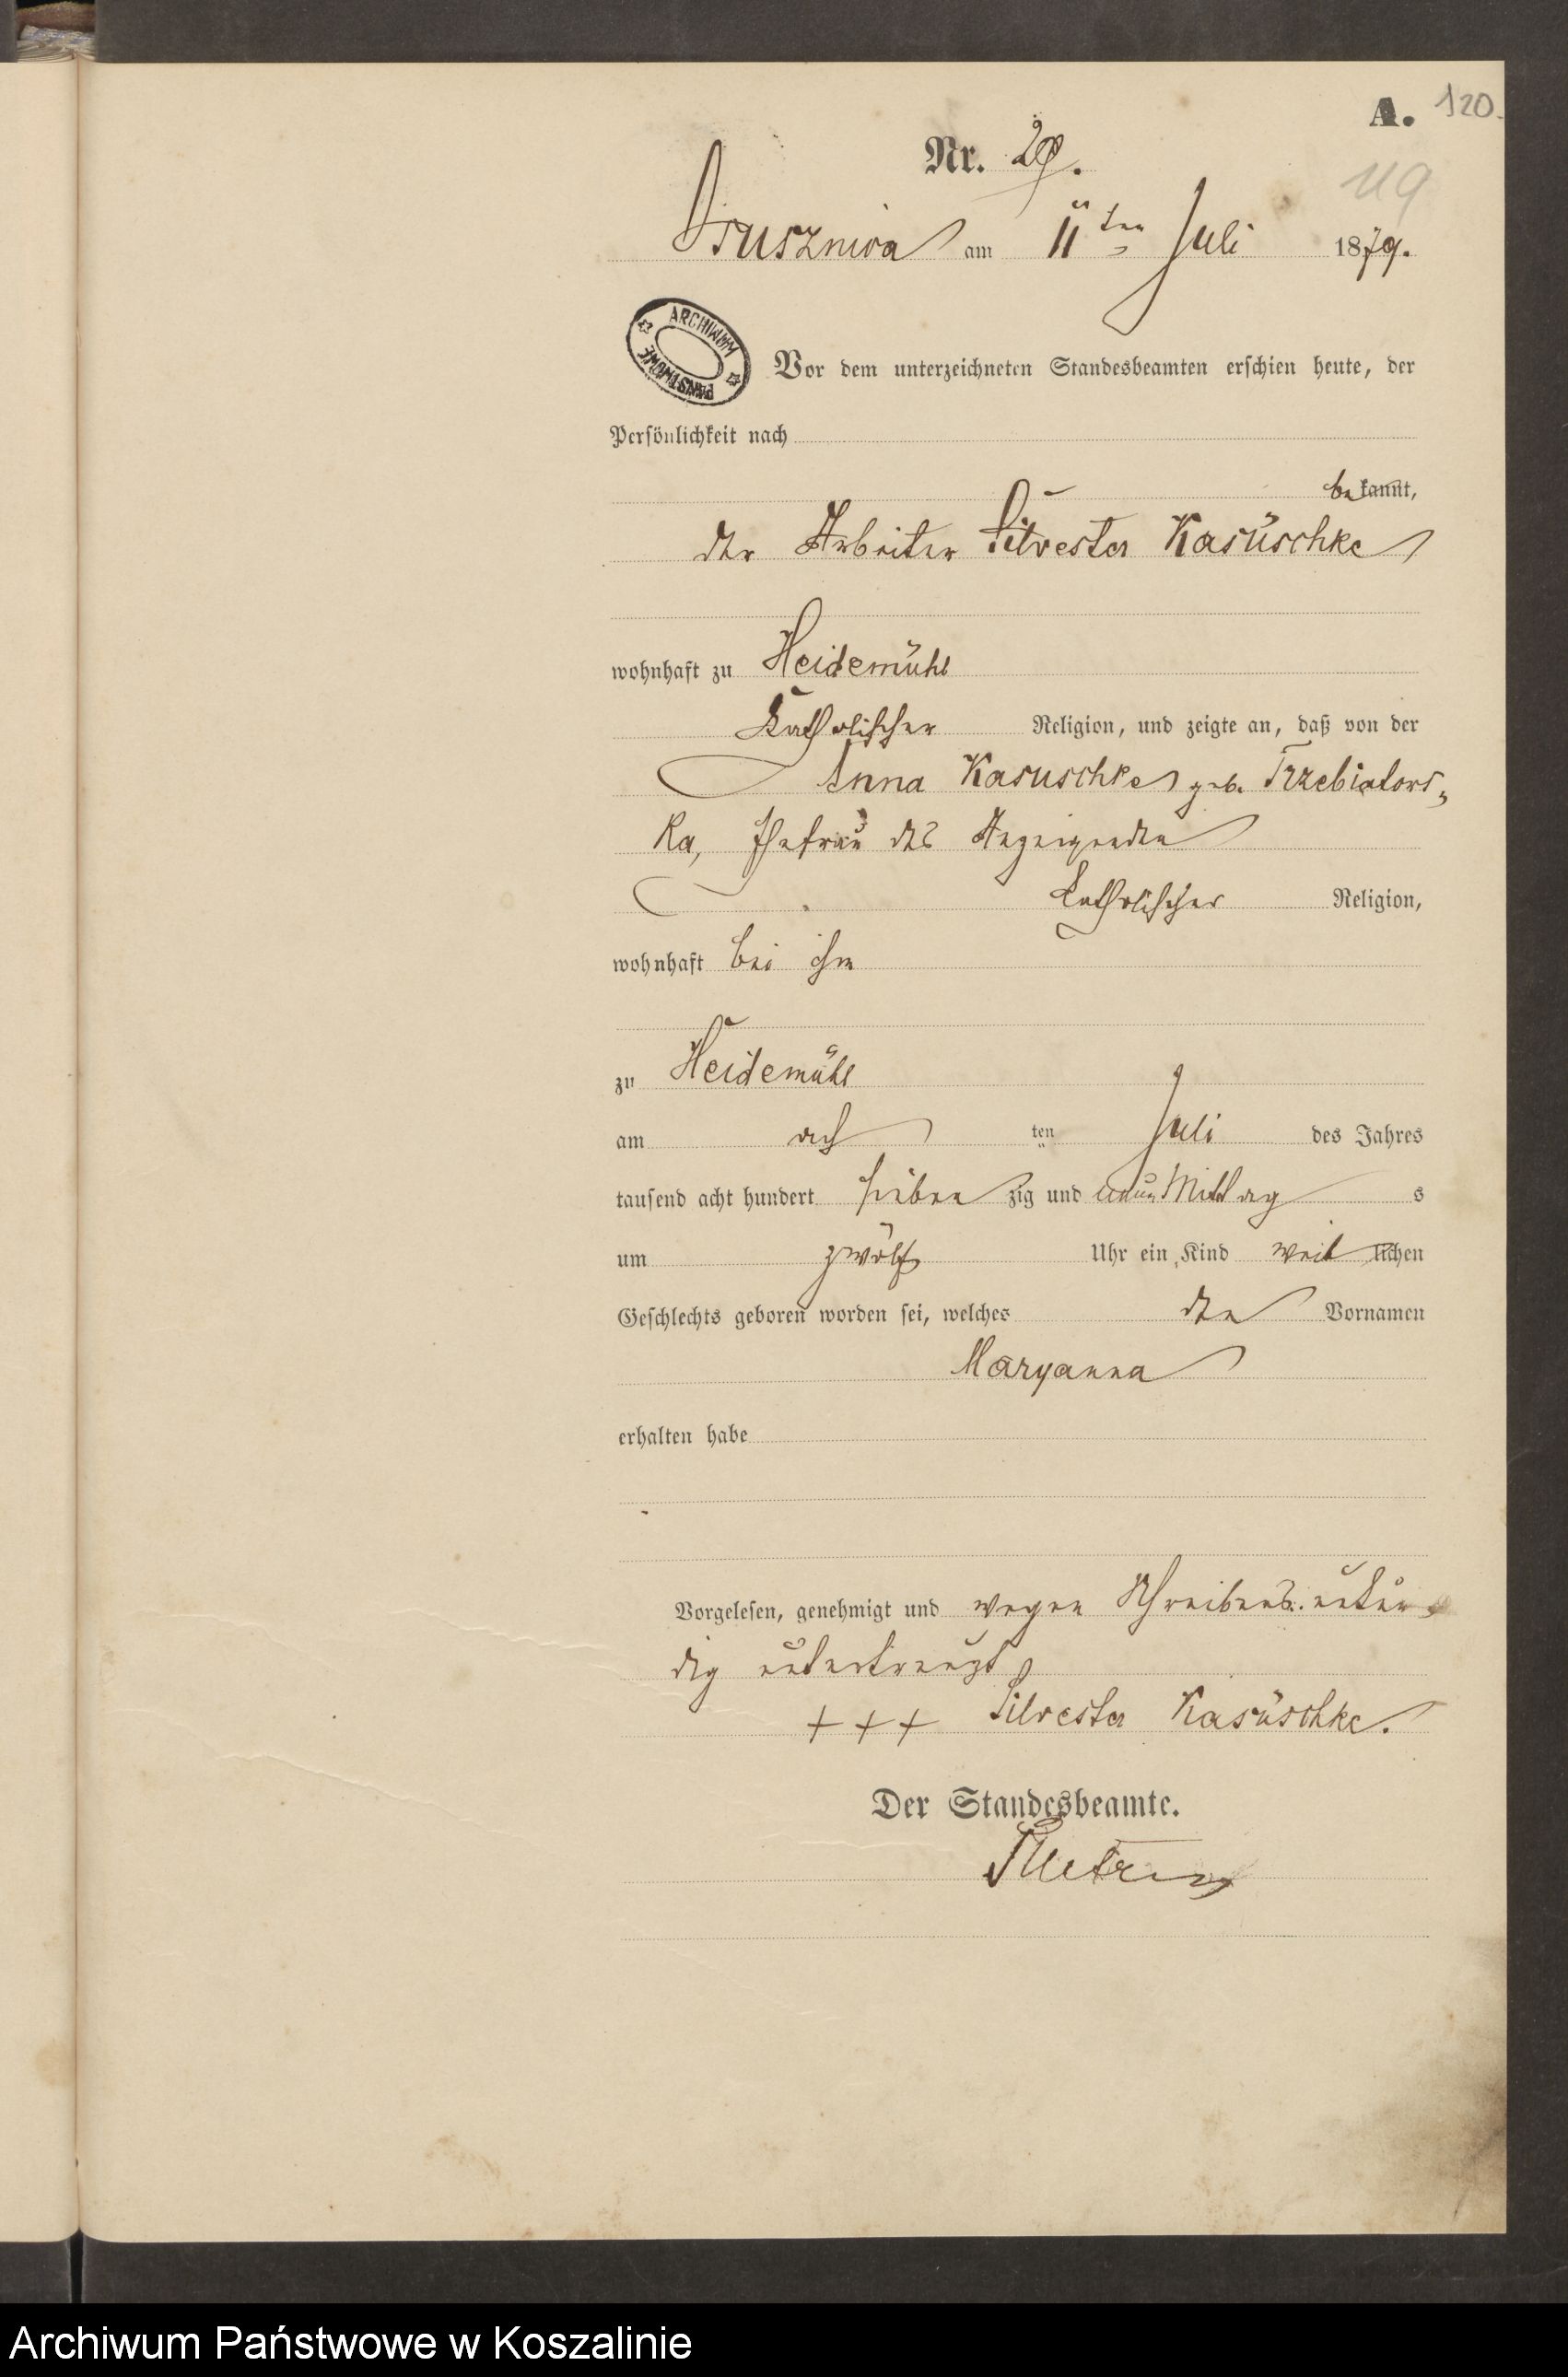 A. 120.
119
Nr. 29.
Prusznica am 11ten Juli 1879.
ARCHIWUM PAŃSTWOWE
Vor dem unterzeichneten Standesbeamten erschien heute, der
Persönlichkeit nach
bekannt,
der Arbeiter Silvester Kasüschke
wohnhaft zu Heidemühl
Katholischer Religion, und zeigte an, daß von der
Anna Kasuschke geb. Trzebiators-
ka, Ehefrau des Anzeigenden
katholischer Religion,
wohnhaft bei ihm
zu Heidemühl
am ach ten Juli des Jahres
tausend acht hundert sieben zig und neun Mittag s
um zwölf Uhr ein Kind weib lichen
Geschlechts geboren worden sei, welches den Vornamen
Maryanna
erhalten habe
Vorgelesen, genehmigt und wegen Schreibens
dig unterkreuzt
+++ Silvester Kasüschke.
Der Standesbeamte.
Archiwum Państwowe w Koszalinie